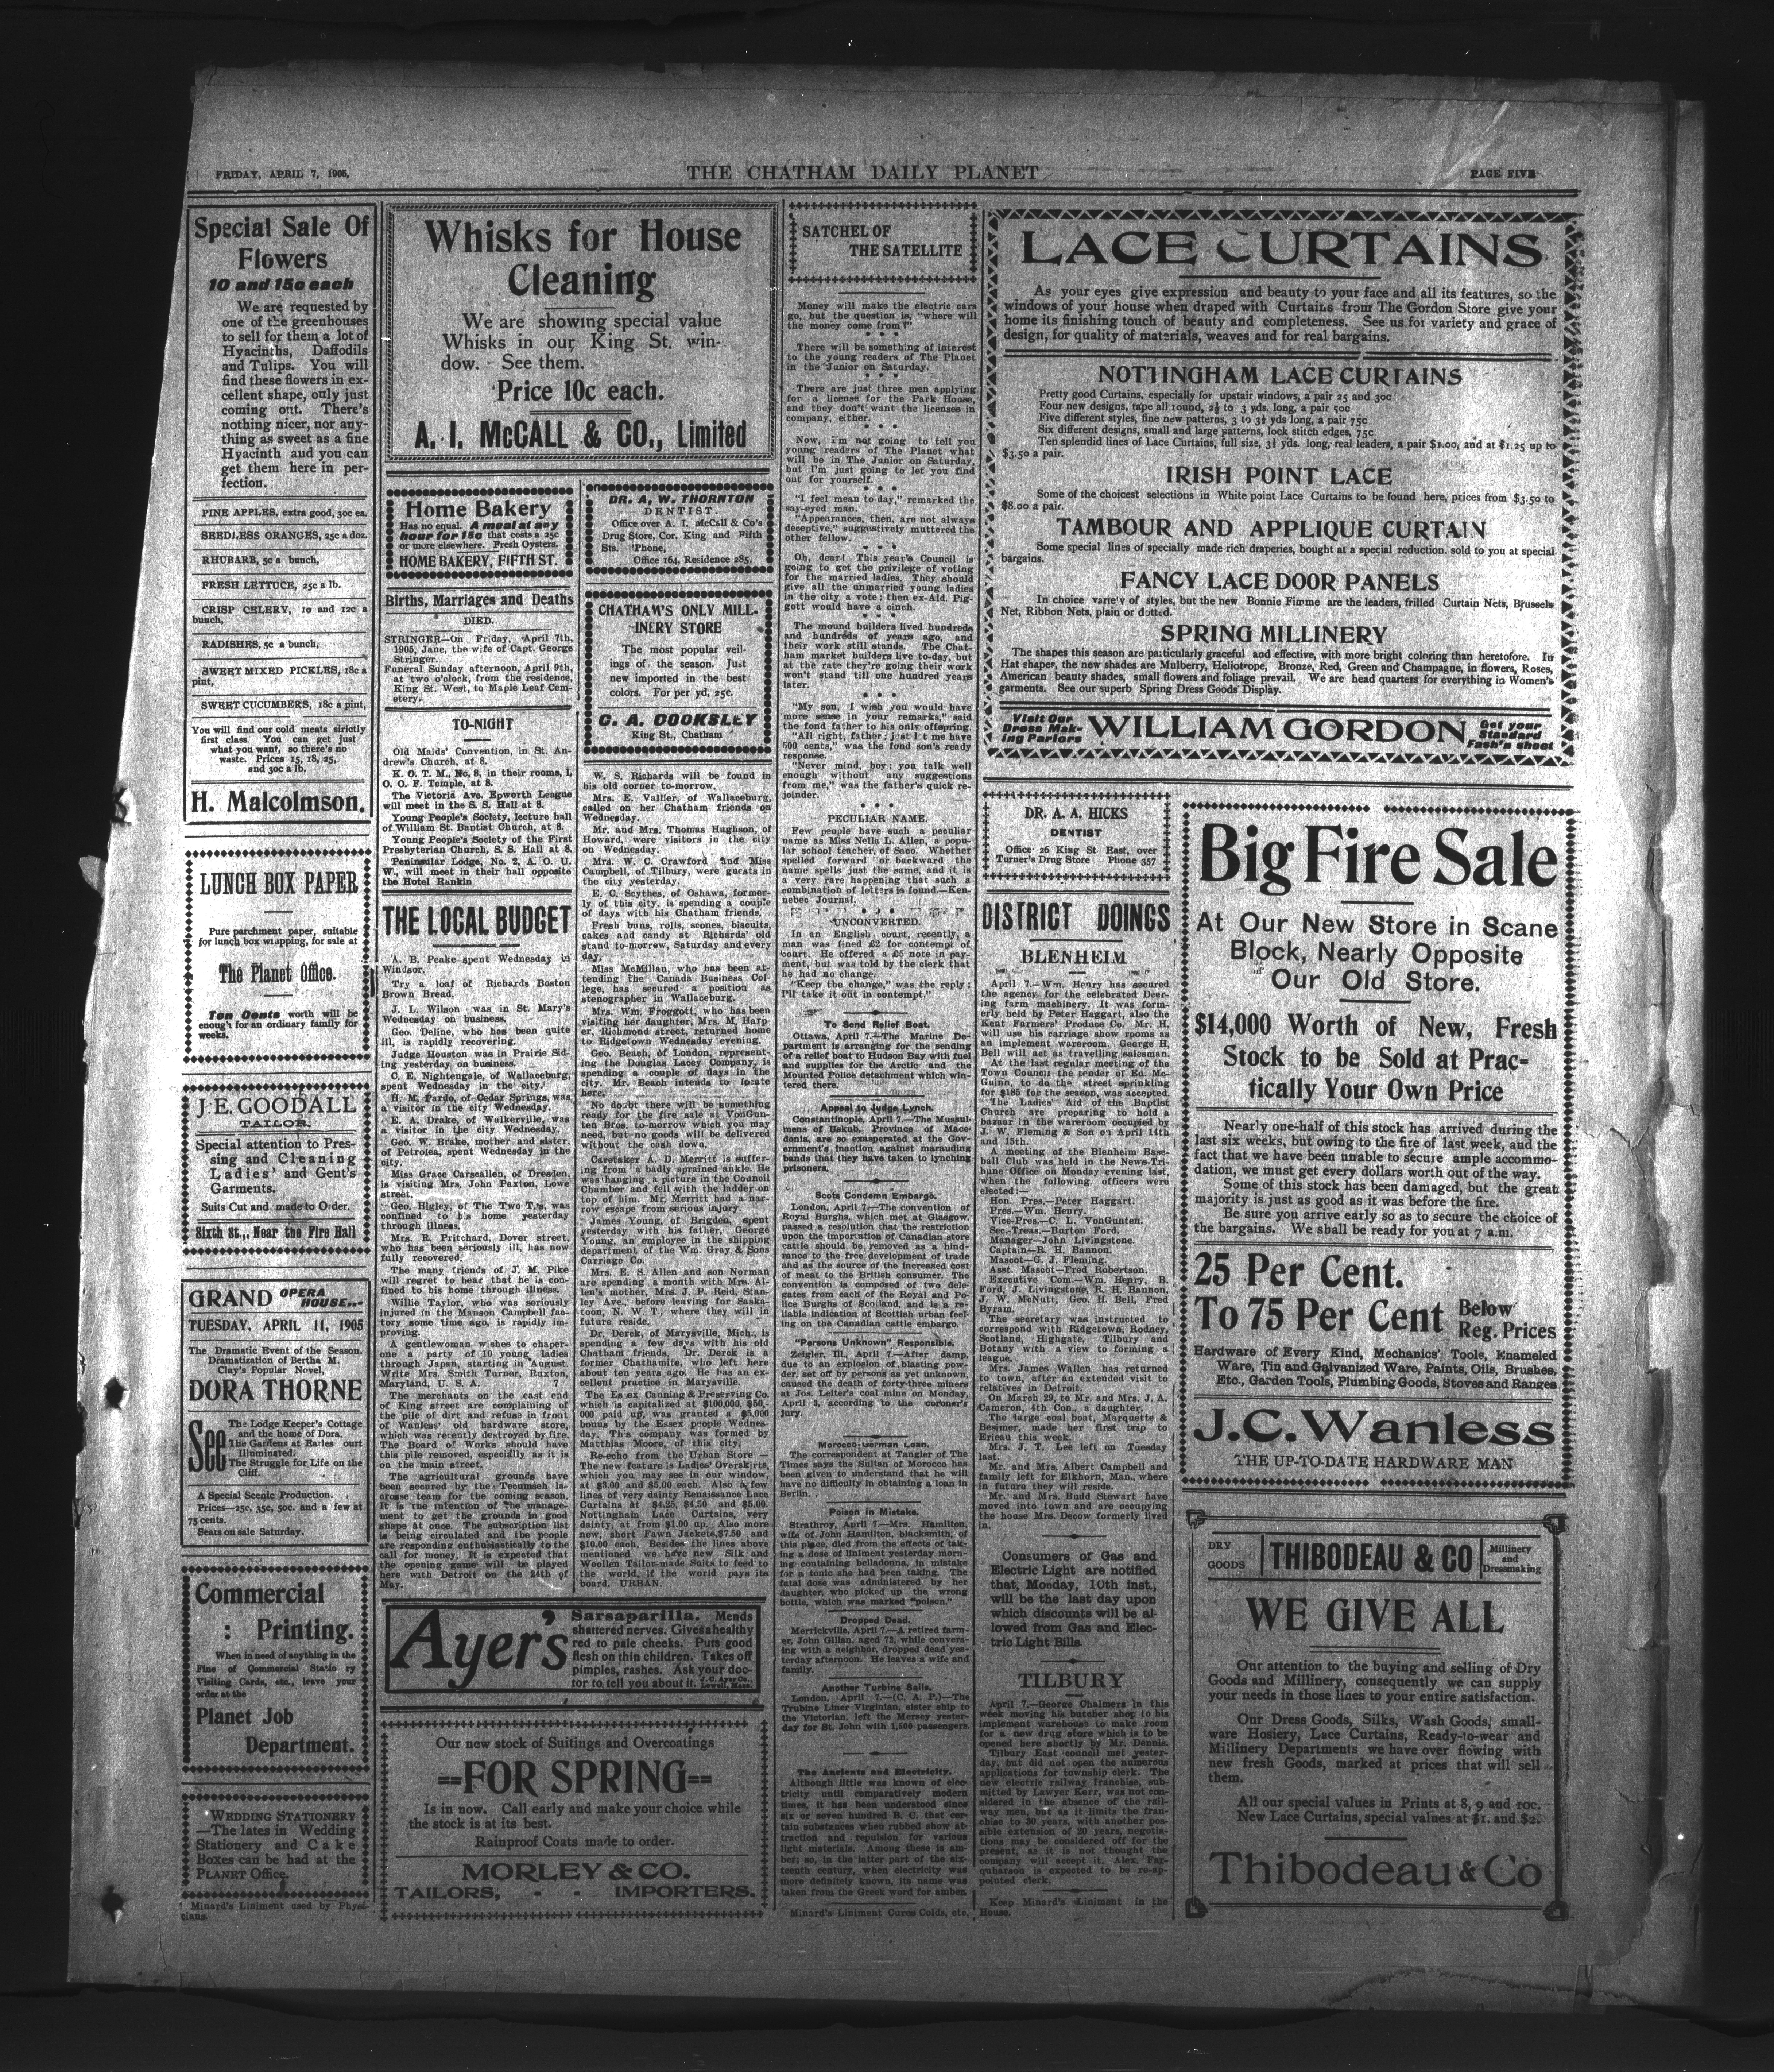 FRIDAY, APRIL 7, 1905,
THE CHATHAM DAILY PLANET
PAGE FIVE
Special Sale Of
Flowers
10 and 15c each
We are requested by
one of the greenhouses
to sell for them a lot of
Hyacinths, Daffodils
and Tulips. You will
find these flowers in ex-
cellent shape, only just
coming out. There's
nothing nicer, nor any-
thing as sweet as a fine
Hyacinth and you can
get them here in per-
fection.
PINE APPLES, extra good, 30c ea.
SEEDLESS ORANGES, 25c a doz.
RHUBARB, 5c a bunch,
FRESH LETTUCE, 25c a lb.
CRISP CELERY, 10 and 12c a
bunch,
RADISHES, 5c a bunch,
SWEET MIXED PICKLES, 18c a
pint,
SWEET CUCUMBERS, 18c a pint,
You will find our cold meats strictly
first class. You can get just
what you want, so there's no
waste. Prices 15, 18, 25,
and 30c a lb.
H. Malcolmson.
LUNCH BOX PAPER
Pure parchment paper, suitable
for lunch box wrapping, for sale at
The Planet Office.
Ten Cents worth will be
enough for an ordinary family for
weeks.
J. E. GOODALL
TAILOR.
Special attention to Pres-
sing and Cleaning
Ladies' and Gent's
Garments.
Suits Cut and made to Order.
Sixth St., Near the Fire Hall
GRAND OPERA HOUSE...
TUESDAY, APRIL 11, 1905
The Dramatic Event of the Season.
Dramatization of Bertha M.
Clay's Popular Novel,
DORA THORNE
See
The Lodge Keeper's Cottage
and the home of Dora.
The Gardens at Earles ourt
Illuminated.
The Struggle for Life on the
Cliff.
A Special Scenic Production.
Prices—25c, 35c, 50c. and a few at
75 cents.
Seats on sale Saturday.
Commercial
: Printing.
When in need of anything in the
Fine of Commercial Statio ry
Visiting Cards, etc., leave your
order at the
Planet Job
Department.
WEDDING STATIONERY
—The lates in Wedding
Stationery and Cake
Boxes can be had at the
PLANET Office.
Minard's Liniment used by Physi-
cians.
Whisks for House
Cleaning
We are showing special value
Whisks in our King St. win-
dow. See them.
Price 10c each.
A. I. McCALL & CO., Limited
Home Bakery
Has no equal. A meal at any
hour for 15c that costs a 25c
or more elsewhere. Fresh Oysters.
HOME BAKERY, FIFTH ST.
Births, Marriages and Deaths
DIED.
STRINGER—On Friday, April 7th,
1905, Jane, the wife of Capt. George
Stringer.
Funeral Sunday afternoon, April 9th,
at two o'clock, from the residence,
King St. West, to Maple Leaf Cem-
etery.
TO-NIGHT
Old Maids' Convention, in St. An-
drew's Church, at 8.
K. O. T. M., No. 8, in their rooms, I.
O. O. F. Temple, at 8.
The Victoria Ave. Epworth League
will meet in the S. S. Hall at 8.
Young People's Society, lecture hall
of William St. Baptist Church, at 8.
Young People's Society of the First
Presbyterian Church, S. S. Hall at 8.
Peninsular Lodge, No. 2, A. O. U.
W., will meet in their hall opposite
the Hotel Rankin
THE LOCAL BUDGET
A. B. Peake spent Wednesday in
Windsor.
Try a loaf of Richards Boston
Brown Bread.
J. L. Wilson was in St. Mary's
Wednesday on business.
Geo. Deline, who has been quite
ill, is rapidly recovering.
Judge Houston was in Prairie Sid-
ing yesterday on business.
C. E. Nightengale, of Wallaceburg,
spent Wednesday in the city.
H. M. Pardo, of Cedar Springs, was
a visitor in the city Wednesday.
E. A. Drake, of Walkerville, was
a visitor in the city Wednesday.
Geo. W. Brake, mother and sister,
of Petrolea, spent Wednesday in the
city.
Miss Grace Carscallen, of Dresden,
is visiting Mrs. John Paxton, Lowe
street.
Geo. Higley, of The Two T.'s, was
confined to his home yesterday
through illness.
Mrs. R. Pritchard, Dover street,
who has been seriously ill, has now
fully recovered.
The many friends of J. M. Pike
will regret to hear that he is con-
fined to his home through illness.
Willie Taylor, who was seriously
injured in the Manson Campbell fac-
tory some time ago, is rapidly im-
proving.
A gentlewoman wishes to chaper-
one a party of 10 young ladies
through Japan, starting in August.
Write Mrs. Smith Turner, Ruxton,
Maryland, U. S. A. 7
The merchants on the east end
of King street are complaining of
the pile of dirt and refuse in front
of Wanless' old hardware store,
which was recently destroyed by fire.
The Board of Works should have
this pile removed, especially as it is
on the main street.
The agricultural grounds have
been secured by the Tecumseh la-
crosse team for the coming season.
It is the intention of the manage-
ment to get the grounds in good
shape at once. The subscription list
is being circulated and the people
are responding enthusiastically to the
call for money. It is expected that
the opening game will be played
here with Detroit on the 24th of
May.
DR. A. W. THORNTON
DENTIST.
Office over A. I. McCall & Co's
Drug Store, Cor. King and Fifth
Sts. 'Phone,
Office 164, Residence 285.
CHATHAM'S ONLY MILL-
INERY STORE
The most popular veil-
ings of the season. Just
new imported in the best
colors. For per yd, 25c.
C. A. COOKSLEY
King St., Chatham
W. S. Richards will be found in
his old corner to-morrow.
Mrs. E. Vallier, of Wallaceburg,
called on her Chatham friends on
Wednesday.
Mr. and Mrs. Thomas Hughson, of
Howard, were visitors in the city
on Wednesday.
Mrs. W. C. Crawford and Miss
Campbell, of Tilbury, were guests in
the city yesterday.
E. C. Scythes, of Oshawa, former-
ly of this city, is spending a couple
of days with his Chatham friends.
Fresh buns, rolls, scones, biscuits,
cakes and candy at Richards' old
stand to-morrow, Saturday and every
day.
Miss McMillan, who has been at-
tending the Canada Business Col-
lege, has secured a position as
stenographer in Wallaceburg.
Mrs. Wm. Froggott, who has been
visiting her daughter, Mrs. M. Harp-
er, Richmond street, returned home
to Ridgetown Wednesday evening.
Geo. Beach, of London, represent-
ing the Douglas Lacey Company, is
spending a couple of days in the
city. Mr. Beach intends to locate
here.
No doubt there will be something
ready for the fire sale at VonGun-
ten Bros. to-morrow which you may
need, but no goods will be delivered
without the cash down.
Caretaker A. D. Merritt is suffer-
ing from a badly sprained ankle. He
was hanging a picture in the Council
Chamber and fell with the ladder on
top of him. Mr. Merritt had a nar-
row escape from serious injury.
James Young, of Brigden, spent
yesterday with his father, George
Young, an employee in the shipping
department of the Wm. Gray & Sons
Carriage Co.
Mrs. E. S. Allen and son Norman
are spending a month with Mrs. Al-
len's mother, Mrs. J. P. Reid, Stan-
ley Ave., before leaving for Saska-
toon, N. W. T., where they will in
future reside.
Dr. Derck, of Marysville, Mich., is
spending a few days with his old
Chatham friends. Dr. Derck is a
former Chathamite, who left here
about ten years ago. He has an ex-
cellent practice in Marysville.
The Essex Canning & Preserving Co.
which is capitalized at $100,000, $50,-
000 paid up, was granted a $5,000
bonus by the Essex people Wednes-
day. This company was formed by
Matthias Moore, of this city.
Re-echo from the Urban Store —
The new feature is Ladies' Overskirts,
which you may see in our window,
at $3.00 and $5.00 each. Also a few
lines of very dainty Renaissance Lace
Curtains at $4.25, $4.50 and $5.00.
Nottingham Lace Curtains, very
dainty, at from $1.00 up. Also more
new, short Fawn Jackets, $7.50 and
$10.00 each. Besides the lines above
mentioned we have new Silk and
Woollen Tailor-made Suits to feed to
the world, if the world pays its
board. URBAN.
Ayer's
Sarsaparilla. Mends
shattered nerves. Gives a healthy
red to pale cheeks. Puts good
flesh on thin children. Takes off
pimples, rashes. Ask your doc-
tor to tell you about it. J. C. Ayer Co., Lowell, Mass.
Our new stock of Suitings and Overcoatings
==FOR SPRING==
Is in now. Call early and make your choice while
the stock is at its best.
Rainproof Coats made to order.
MORLEY & CO.
TAILORS, - - IMPORTERS.
SATCHEL OF
THE SATELLITE
Money will make the electric cars
go, but the question is, "where will
the money come from?"
* * *
There will be something of interest
to the young readers of The Planet
in the Junior on Saturday.
* * *
There are just three men applying
for a license for the Park House,
and they don't want the licenses in
company, either.
* * *
Now, i'm not going to tell you
young readers of The Planet what
will be in The Junior on Saturday,
but I'm just going to let you find
out for yourself.
* * *
"I feel mean to-day," remarked the
say-eyed man.
"Appearances, then, are not always
deceptive," suggestively muttered the
other fellow.
* * *
Oh, dear! This year's Council is
going to get the privilege of voting
for the married ladies. They should
give all the unmarried young ladies
in the city a vote; then ex-Ald. Pig-
gott would have a cinch.
* * *
The mound builders lived hundreds
and hundreds of years ago, and
their work still stands. The Chat-
ham market builders live to-day, but
at the rate they're going their work
won't stand till one hundred years
later.
* * *
"My son, I wish you would have
more sense in your remarks," said
the fond father to his only offspring.
"All right, father; just let me have
500 cents," was the fond son's ready
response.
"Never mind, boy; you talk well
enough without any suggestions
from me," was the father's quick re-
joinder.
* * *
PECULIAR NAME.
Few people have such a peculiar
name as Miss Nella L. Allen, a popu-
lar school teacher, of Saco. Whether
spelled forward or backward the
name spells just the same, and it is
a very rare happening that such a
combination of letters is found.—Ken-
nebec Journal.
* * *
UNCONVERTED.
In an English court, recently, a
man was fined £2 for contempt of
court. He offered a £5 note in pay-
ment, but was told by the clerk that
he had no change.
"Keep the change," was the reply;
I'll take it out in contempt."
To Send Relief Boat.
Ottawa, April 7.—The Marine De-
partment is arranging for the sending
of a relief boat to Hudson Bay with fuel
and supplies for the Arctic and the
Mounted Police detachment which win-
tered there.
Appeal to Judge Lynch.
Constantinople, April 7.—The Mussul-
mans of Uskub, Province of Mace-
donia, are so exasperated at the Gov-
ernment's inaction against marauding
bands that they have taken to lynching
prisoners.
Scots Condemn Embargo.
London, April 7.—The convention of
Royal Burghs, which met at Glasgow,
passed a resolution that the restriction
upon the importation of Canadian store
cattle should be removed as a hind-
rance to the free development of trade
and as the source of the increased cost
of meat to the British consumer. The
convention is composed of two dele-
gates from each of the Royal and Po-
lice Burghs of Scotland, and is a re-
liable indication of Scottish urban feel-
ing on the Canadian cattle embargo.
"Persons Unknown" Responsible.
Zeigler, Ill., April 7.—After damp,
due to an explosion of blasting pow-
der, set off by persons as yet unknown,
caused the death of forty-three miners
at Jos. Leiter's coal mine on Monday,
April 3, according to the coroner's
jury.
Morocco-German Loan.
The correspondent at Tangier of The
Times says the Sultan of Morocco has
been given to understand that he will
have no difficulty in obtaining a loan in
Berlin.
Poison in Mistake.
Strathroy, April 7.—Mrs. Hamilton,
wife of John Hamilton, blacksmith, of
this place, died from the effects of tak-
ing a dose of liniment yesterday morn-
ing containing belladonna, in mistake
for a tonic she had been taking. The
fatal dose was administered by her
daughter, who picked up the wrong
bottle, which was marked "poison."
Dropped Dead.
Merrickville, April 7.—A retired farm-
er, John Gillan, aged 72, while convers-
ing with a neighbor, dropped dead yes-
terday afternoon. He leaves a wife and
family.
Another Turbine Sails.
London, April 7.—(C. A. P.)—The
Trubine Liner Virginian, sister ship to
the Victorian, left the Mersey yester-
day for St. John with 1,500 passengers.
The Ancients and Electricity.
Although little was known of elec-
tricity until comparatively modern
times, it has been understood since
six or seven hundred B. C. that cer-
tain substances when rubbed show at-
traction and repulsion for various
light materials. Among these is am-
ber; so, in the latter part of the six-
teenth century, when electricity was
more definitely known, its name was
taken from the Greek word for amber.
Minard's Liniment Cures Colds, etc.
LACE CURTAINS
As your eyes give expression and beauty to your face and all its features, so the
windows of your house when draped with Curtains from The Gordon Store give your
home its finishing touch of beauty and completeness. See us for variety and grace of
design, for quality of materials, weaves and for real bargains.
NOTTINGHAM LACE CURTAINS
Pretty good Curtains, especially for upstair windows, a pair 25 and 30c
Four new designs, tape all round, 2½ to 3 yds. long, a pair 50c
Five different styles, fine new patterns, 3 to 3½ yds long, a pair 75c
Six different designs, small and large patterns, lock stitch edges, 75c
Ten splendid lines of Lace Curtains, full size, 3½ yds. long, real leaders, a pair $1.00, and at $1.25 up to
$3.50 a pair.
IRISH POINT LACE
Some of the choicest selections in White point Lace Curtains to be found here, prices from $3.50 to
$8.00 a pair.
TAMBOUR AND APPLIQUE CURTAIN
Some special lines of specially made rich draperies, bought at a special reduction. sold to you at special
bargains.
FANCY LACE DOOR PANELS
In choice variety of styles, but the new Bonnie Fimme are the leaders, frilled Curtain Nets, Brussels
Net, Ribbon Nets, plain or dotted.
SPRING MILLINERY
The shapes this season are particularly graceful and effective, with more bright coloring than heretofore. In
Hat shapes, the new shades are Mulberry, Heliotrope, Bronze, Red, Green and Champagne, in flowers, Roses,
American beauty shades, small flowers and foliage prevail. We are head quarters for everything in Women's
garments. See our superb Spring Dress Goods Display.
Visit Our
Dress Mak-
ing Parlors
WILLIAM GORDON
Get your
Standard
Fash'n sheet
DR. A. A. HICKS
DENTIST
Office 26 King St East, over
Turner's Drug Store Phone 357
DISTRICT DOINGS
BLENHEIM
April 7.—Wm. Henry has secured
the agency for the celebrated Deer-
ing farm machinery. It was form-
erly held by Peter Haggart, also the
Kent Farmers' Produce Co. Mr. H.
will use his carriage show rooms as
an implement wareroom. George H.
Bell will act as travelling salesman.
At the last regular meeting of the
Town Council the tender of Ed. Mc-
Guin, to do the street sprinkling
for $185 for the season, was accepted.
The Ladies' Aid of the Baptist
Church are preparing to hold a
bazaar in the wareroom occupied by
J. W. Fleming & Son on April 14th
and 15th.
A meeting of the Blenheim Base-
ball Club was held in the News-Tri-
bune Office on Monday evening last,
when the following officers were
elected:—
Hon. Pres.—Peter Haggart.
Pres.—Wm. Henry.
Vice-Pres.—C. L. VonGunten.
Sec.-Treas.—Burton Ford.
Manager—John Livingstone.
Captain—R. H. Bannon.
Mascot—G. J. Fleming.
Asst. Mascot—Fred Robertson.
Executive Com.—Wm. Henry, B.
Ford, J. Livingstone, R. H. Bannon,
J. W. McNutt, Geo. H. Bell, Fred
Byram.
The secretary was instructed to
correspond with Ridgetown, Rodney,
Scotland, Highgate, Tilbury and
Botany with a view to forming a
league.
Mrs. James Wallen has returned
to town, after an extended visit to
relatives in Detroit.
On March 29, to Mr. and Mrs. J. A.
Cameron, 4th Con., a daughter.
The large coal boat, Marquette &
Besimer, made her first trip to
Erieau this week.
Mrs. J. T. Lee left on Tuesday
last.
Mr. and Mrs. Albert Campbell and
family left for Elkhorn, Man., where
in future they will reside.
Mr. and Mrs. Budd Stewart have
moved into town and are occupying
the house Mrs. Decow formerly lived
in.
Consumers of Gas and
Electric Light are notified
that, Monday, 10th inst.,
will be the last day upon
which discounts will be al-
lowed from Gas and Elec-
tric Light Bills.
TILBURY
April 7.—George Chalmers in this
week moving his butcher shop to his
implement warehouse to make room
for a new drug store which is to be
opened here shortly by Mr. Dennis.
Tilbury East council met yester-
day, but did not open the numerous
applications for township clerk. The
new electric railway franchise, sub-
mitted by Lawyer Kerr, was not con-
sidered in the absence of the rail-
way men, but as it limits the fran-
chise to 30 years, with another pos-
sible extension of 20 years, negotia-
tions may be considered off for the
present, as it is not thought the
company will accept it. Alex. Far-
quharson is expected to be re-ap-
pointed clerk.
Keep Minard's Liniment in the
House.
Big Fire Sale
At Our New Store in Scane
Block, Nearly Opposite
Our Old Store.
$14,000 Worth of New, Fresh
Stock to be Sold at Prac-
tically Your Own Price
Nearly one-half of this stock has arrived during the
last six weeks, but owing to the fire of last week, and the
fact that we have been unable to secure ample accommo-
dation, we must get every dollars worth out of the way.
Some of this stock has been damaged, but the great
majority is just as good as it was before the fire.
Be sure you arrive early so as to secure the choice of
the bargains. We shall be ready for you at 7 a.m.
25 Per Cent.
To 75 Per Cent Below Reg. Prices
Hardware of Every Kind, Mechanics' Tools, Enameled
Ware, Tin and Galvanized Ware, Paints, Oils, Brushes,
Etc., Garden Tools, Plumbing Goods, Stoves and Ranges
J. C. Wanless
THE UP-TO-DATE HARDWARE MAN
DRY
GOODS
THIBODEAU & CO
Millinery
and
Dressmaking
WE GIVE ALL
Our attention to the buying and selling of Dry
Goods and Millinery, consequently we can supply
your needs in those lines to your entire satisfaction.
Our Dress Goods, Silks, Wash Goods, small-
ware Hosiery, Lace Curtains, Ready-to-wear and
Millinery Departments we have over flowing with
new fresh Goods, marked at prices that will sell
them.
All our special values in Prints at 8, 9 and 10c.
New Lace Curtains, special values at $1. and $2.
Thibodeau & Co